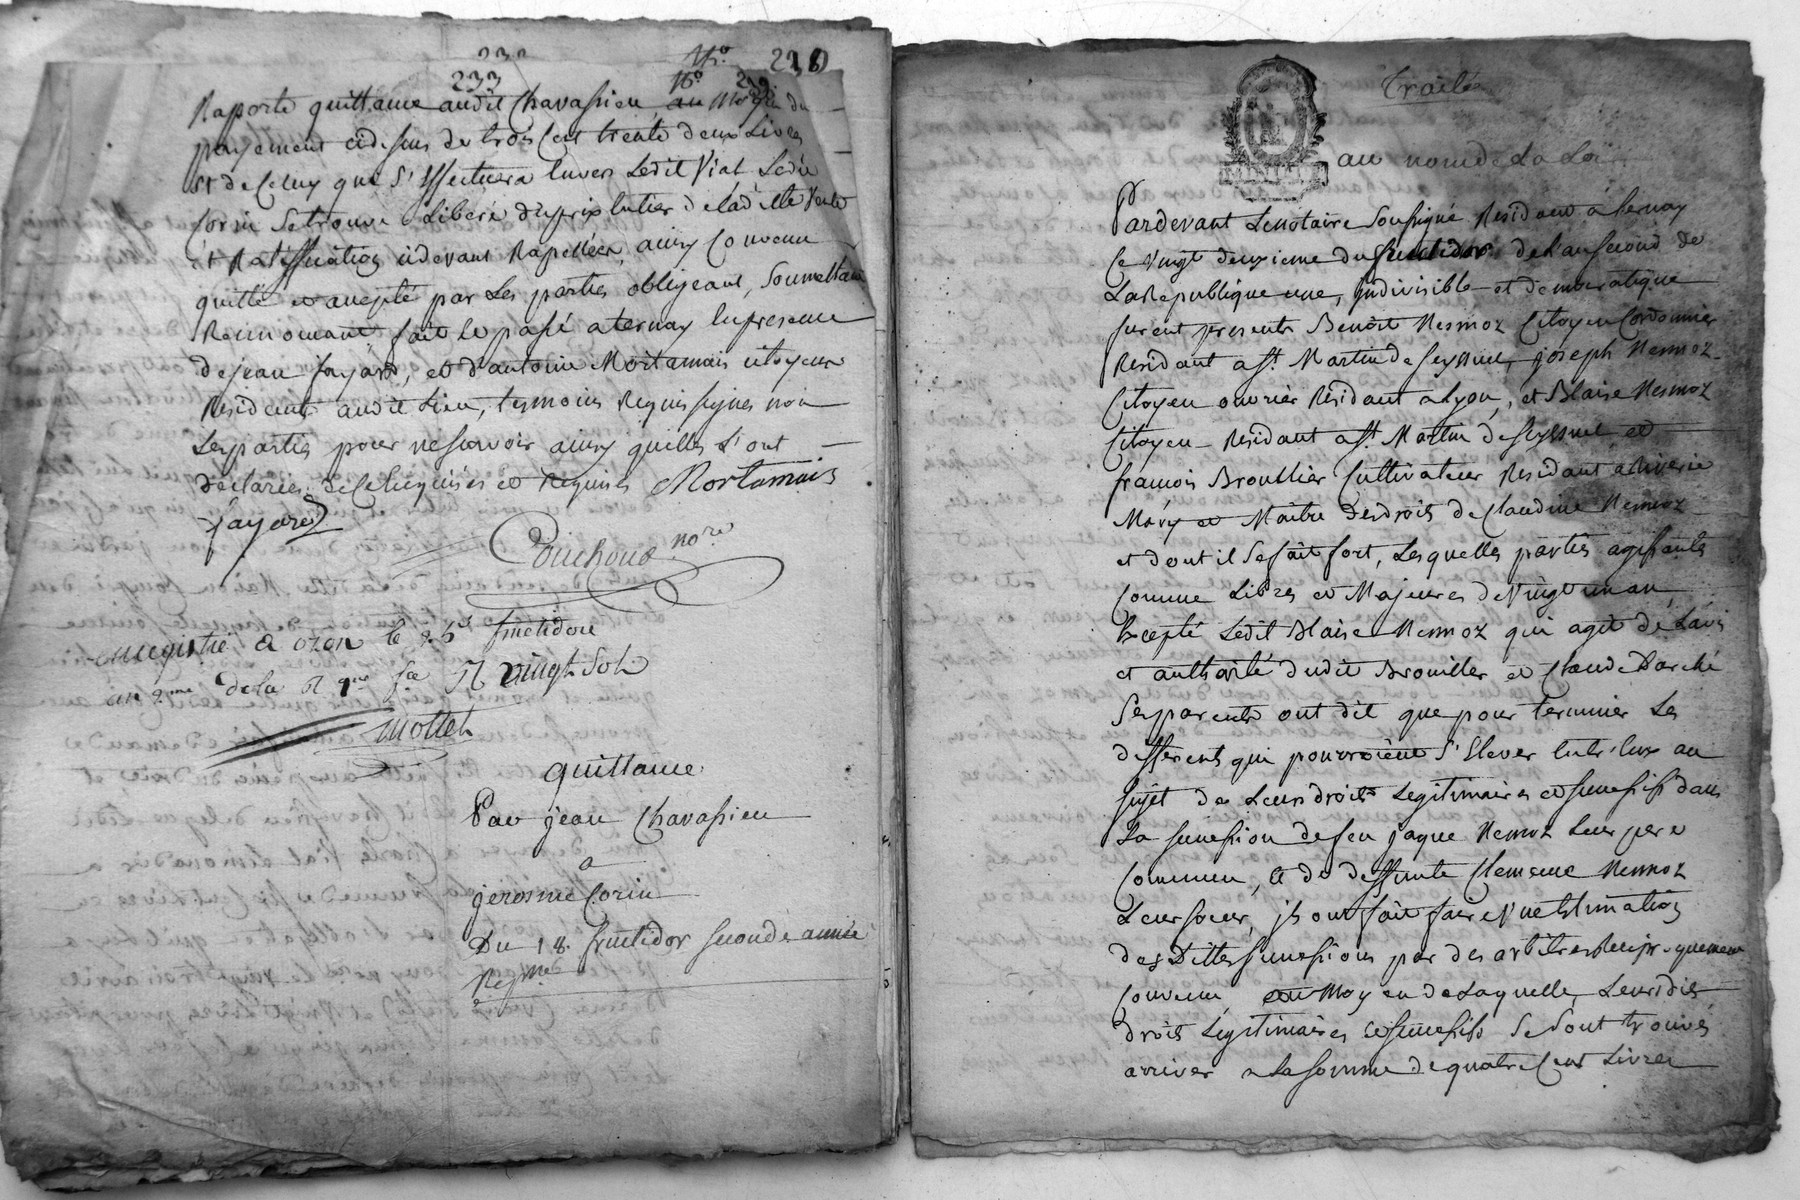 232 N.º 230
233 N.º 229
Raporte quittance audit Chavassieu, au Moyen du
payement cidesus de trois Cent trente deux Livres
et de Celuy que S'Effectuera Envers Ledit Vial Ledit
Corin Setrouve Libéré du prix Entier de laditte Vente
et Ratiffication cidevant Rapellées, ainsy Convenu
quitté et accepté par Les parties obligeant, Soumettant
Renoncant fait et passé a ternay En presence
de jean fayard, et d'antoine Mortamais citoyens
Residents audit Lieu, temoins Requis signés non
Les parties pour ne Scavoir ainsy quelles L'ont
declarées de Ce Enquises et Requises Mortamais
fayard
Couchoud no.re
enregistré a ozon le 26 fructidore
an 2.me de la R que fse Rt vingt Sols
Mottet
quittance
Par jean Chavassieu
a
jerosme Corin
Du 18. fructidor seconde année
Repne
Traité
au nom de La Loi
Pardevant Le notaire Soussigné Résident à ternay
Ce Vingt deuxieme du fructidor de l'an second de
La Republique une, indivisible et democratique
furent presents Benoît Nesmoz Citoyen Cordonnier
Résidant a St. Martin de Seyssuel, joseph Nesmoz
Citoyen ouvrier Résidant a Lyon, et Blaise Nesmoz
Citoyen Residant a St. Martin de seyssuel et
francois Broullier Cultivateur Residant a Riverie
Mary et Maître des droits de Claudine Nesmoz
et dont il Se fait fort, Lesquelles parties agissants
Comme Libres et Majeures de Vingt un an
Excepté Ledit Blaise Nesmoz qui agit de L'avis
et authorité dudit Brouiller et Claude Darché
Ses parents ont dit que pour terminer Les
differents qui pourroient S'Elever Entr'Eux au
Sujet de Leurs droits Legitimaires et successifs dans
La succession de feu jaque Nesmoz Leur pere
Commun, et de deffunte Clemence Nesmoz
Leur soeur, ils ont fait faire Une Estimation
des Dittes successions par des arbitres Reciproquement
Convenu, au Moyen de Laquelle, Leursdits
droits Legitimaires et successifs Se Sont trouvés
arriver a La somme de quatre Cent Livres